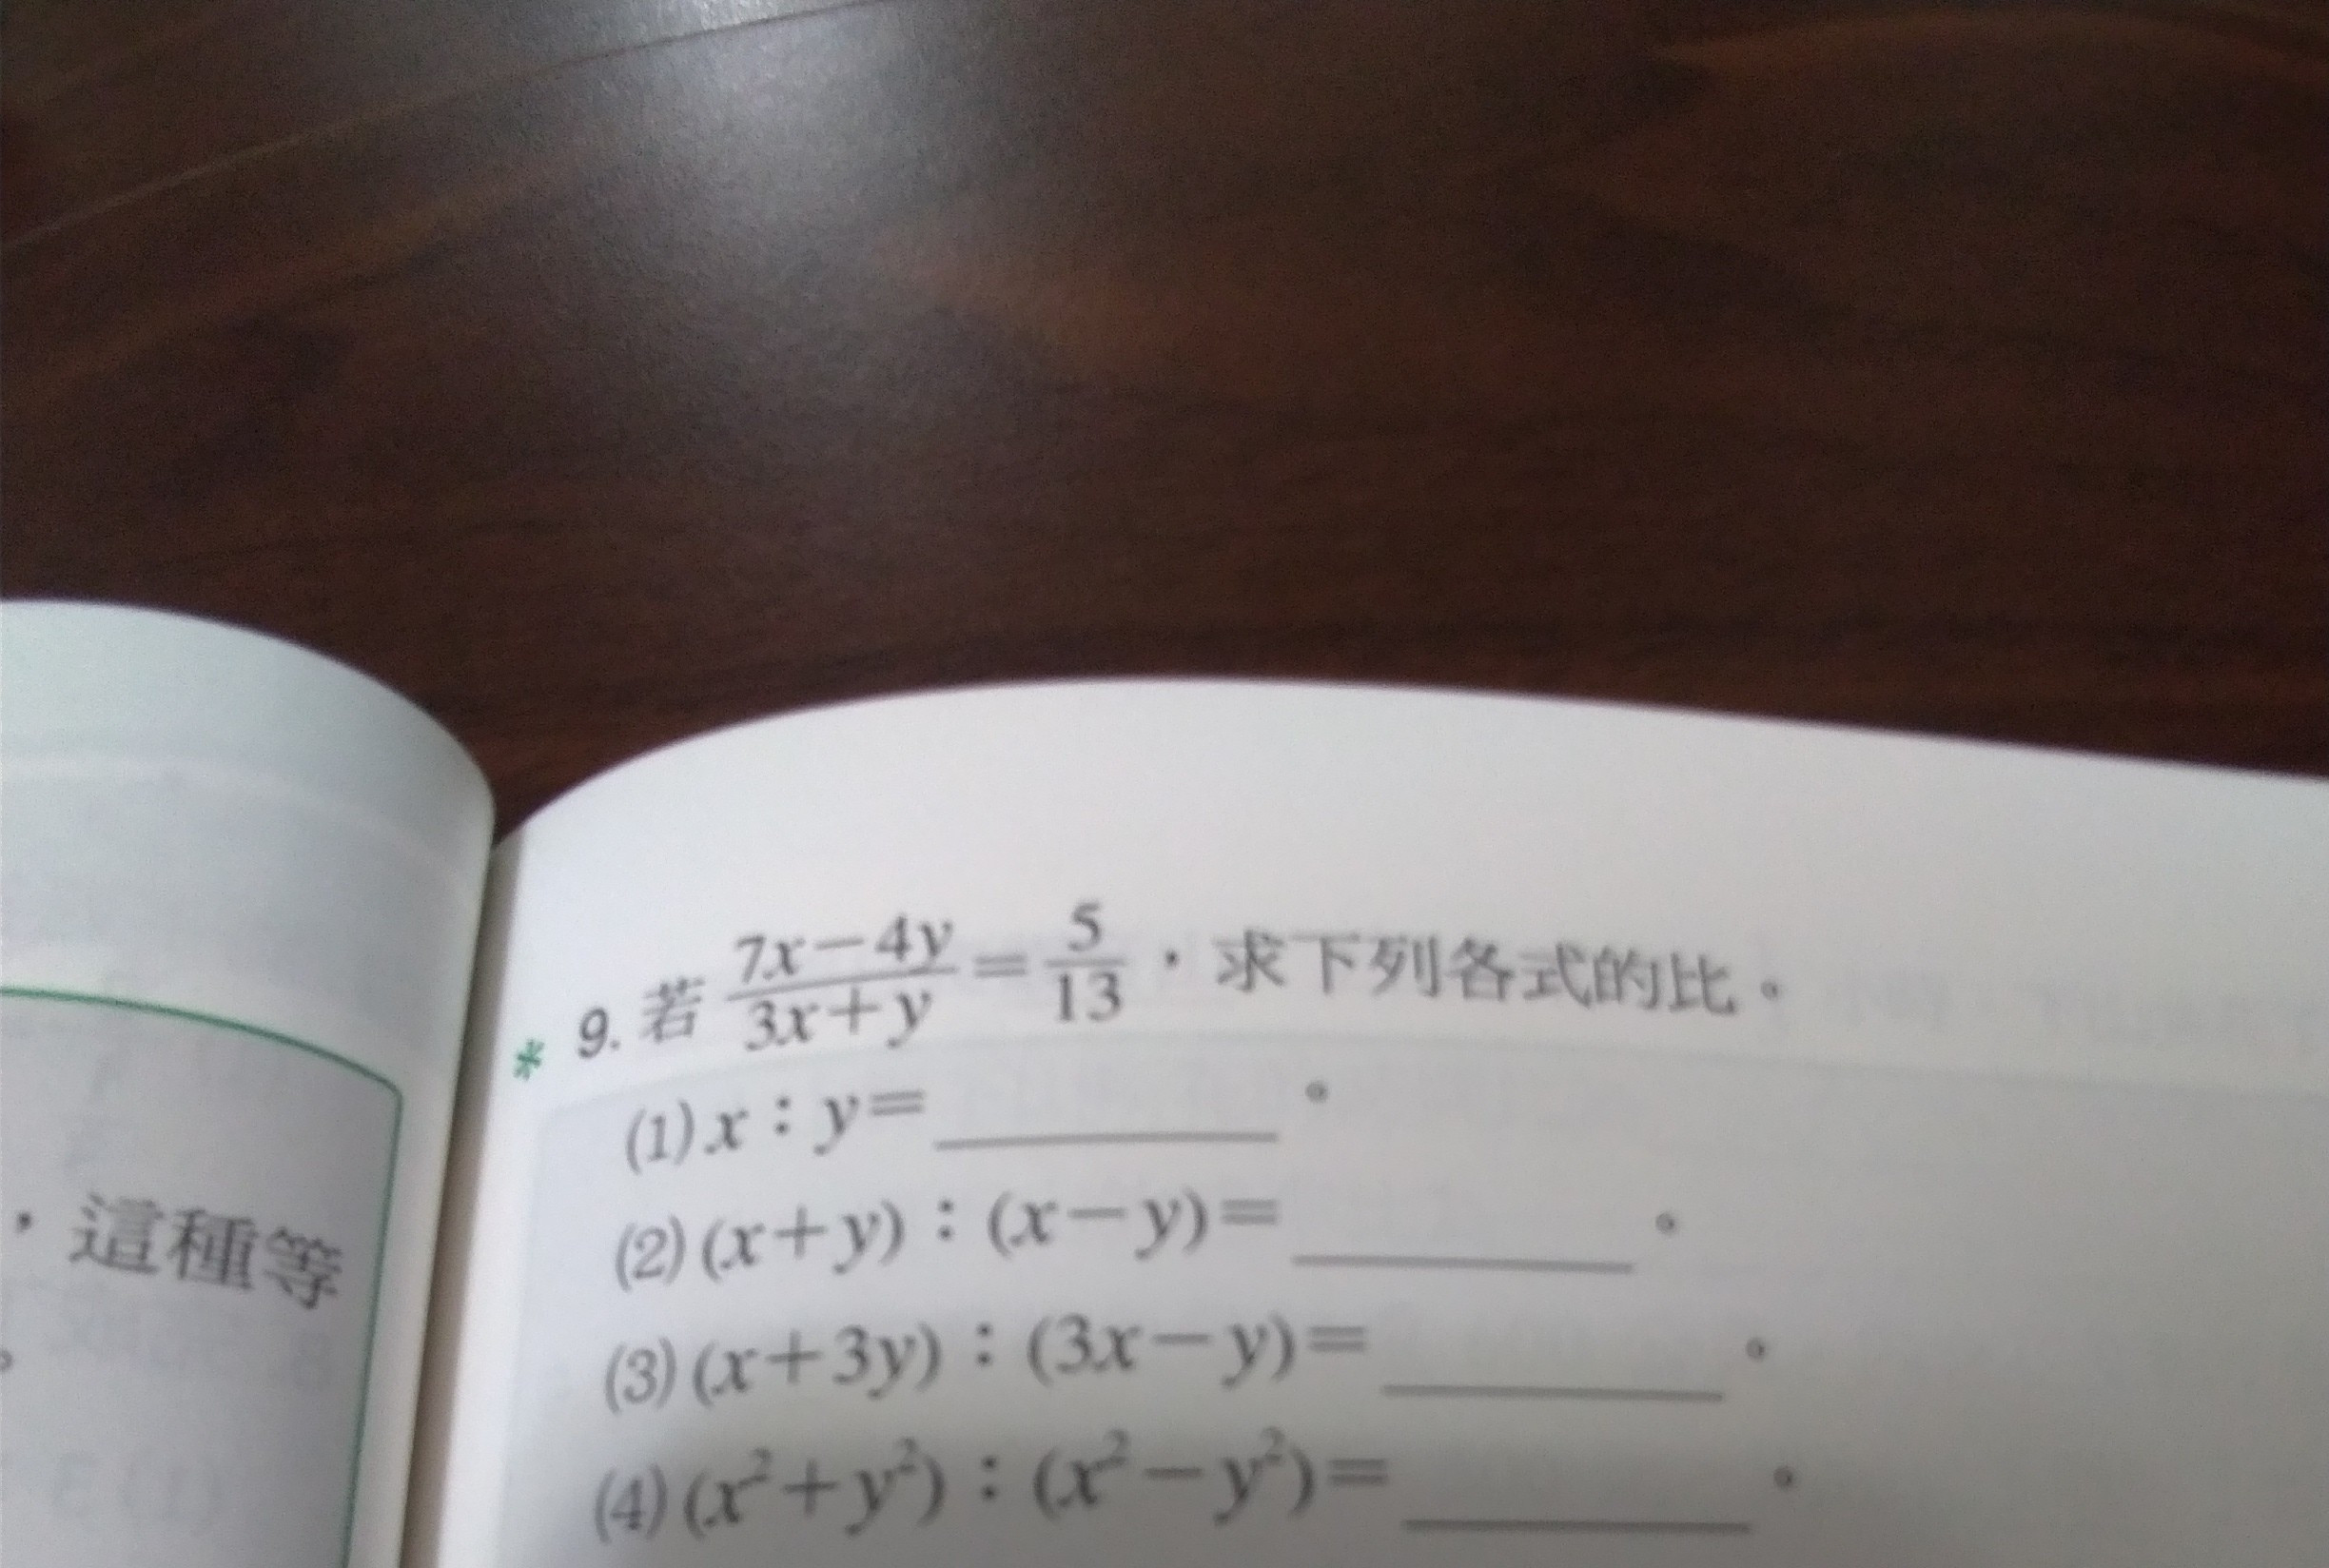 ，這種等
。
* 9. 若 \frac{7x-4y}{3x+y}=\frac{5}{13}，求下列各式的比。
(1) x：y=________。
(2) (x+y)：(x-y)=________。
(3) (x+3y)：(3x-y)=________。
(4) (x²+y²)：(x²-y²)=________。